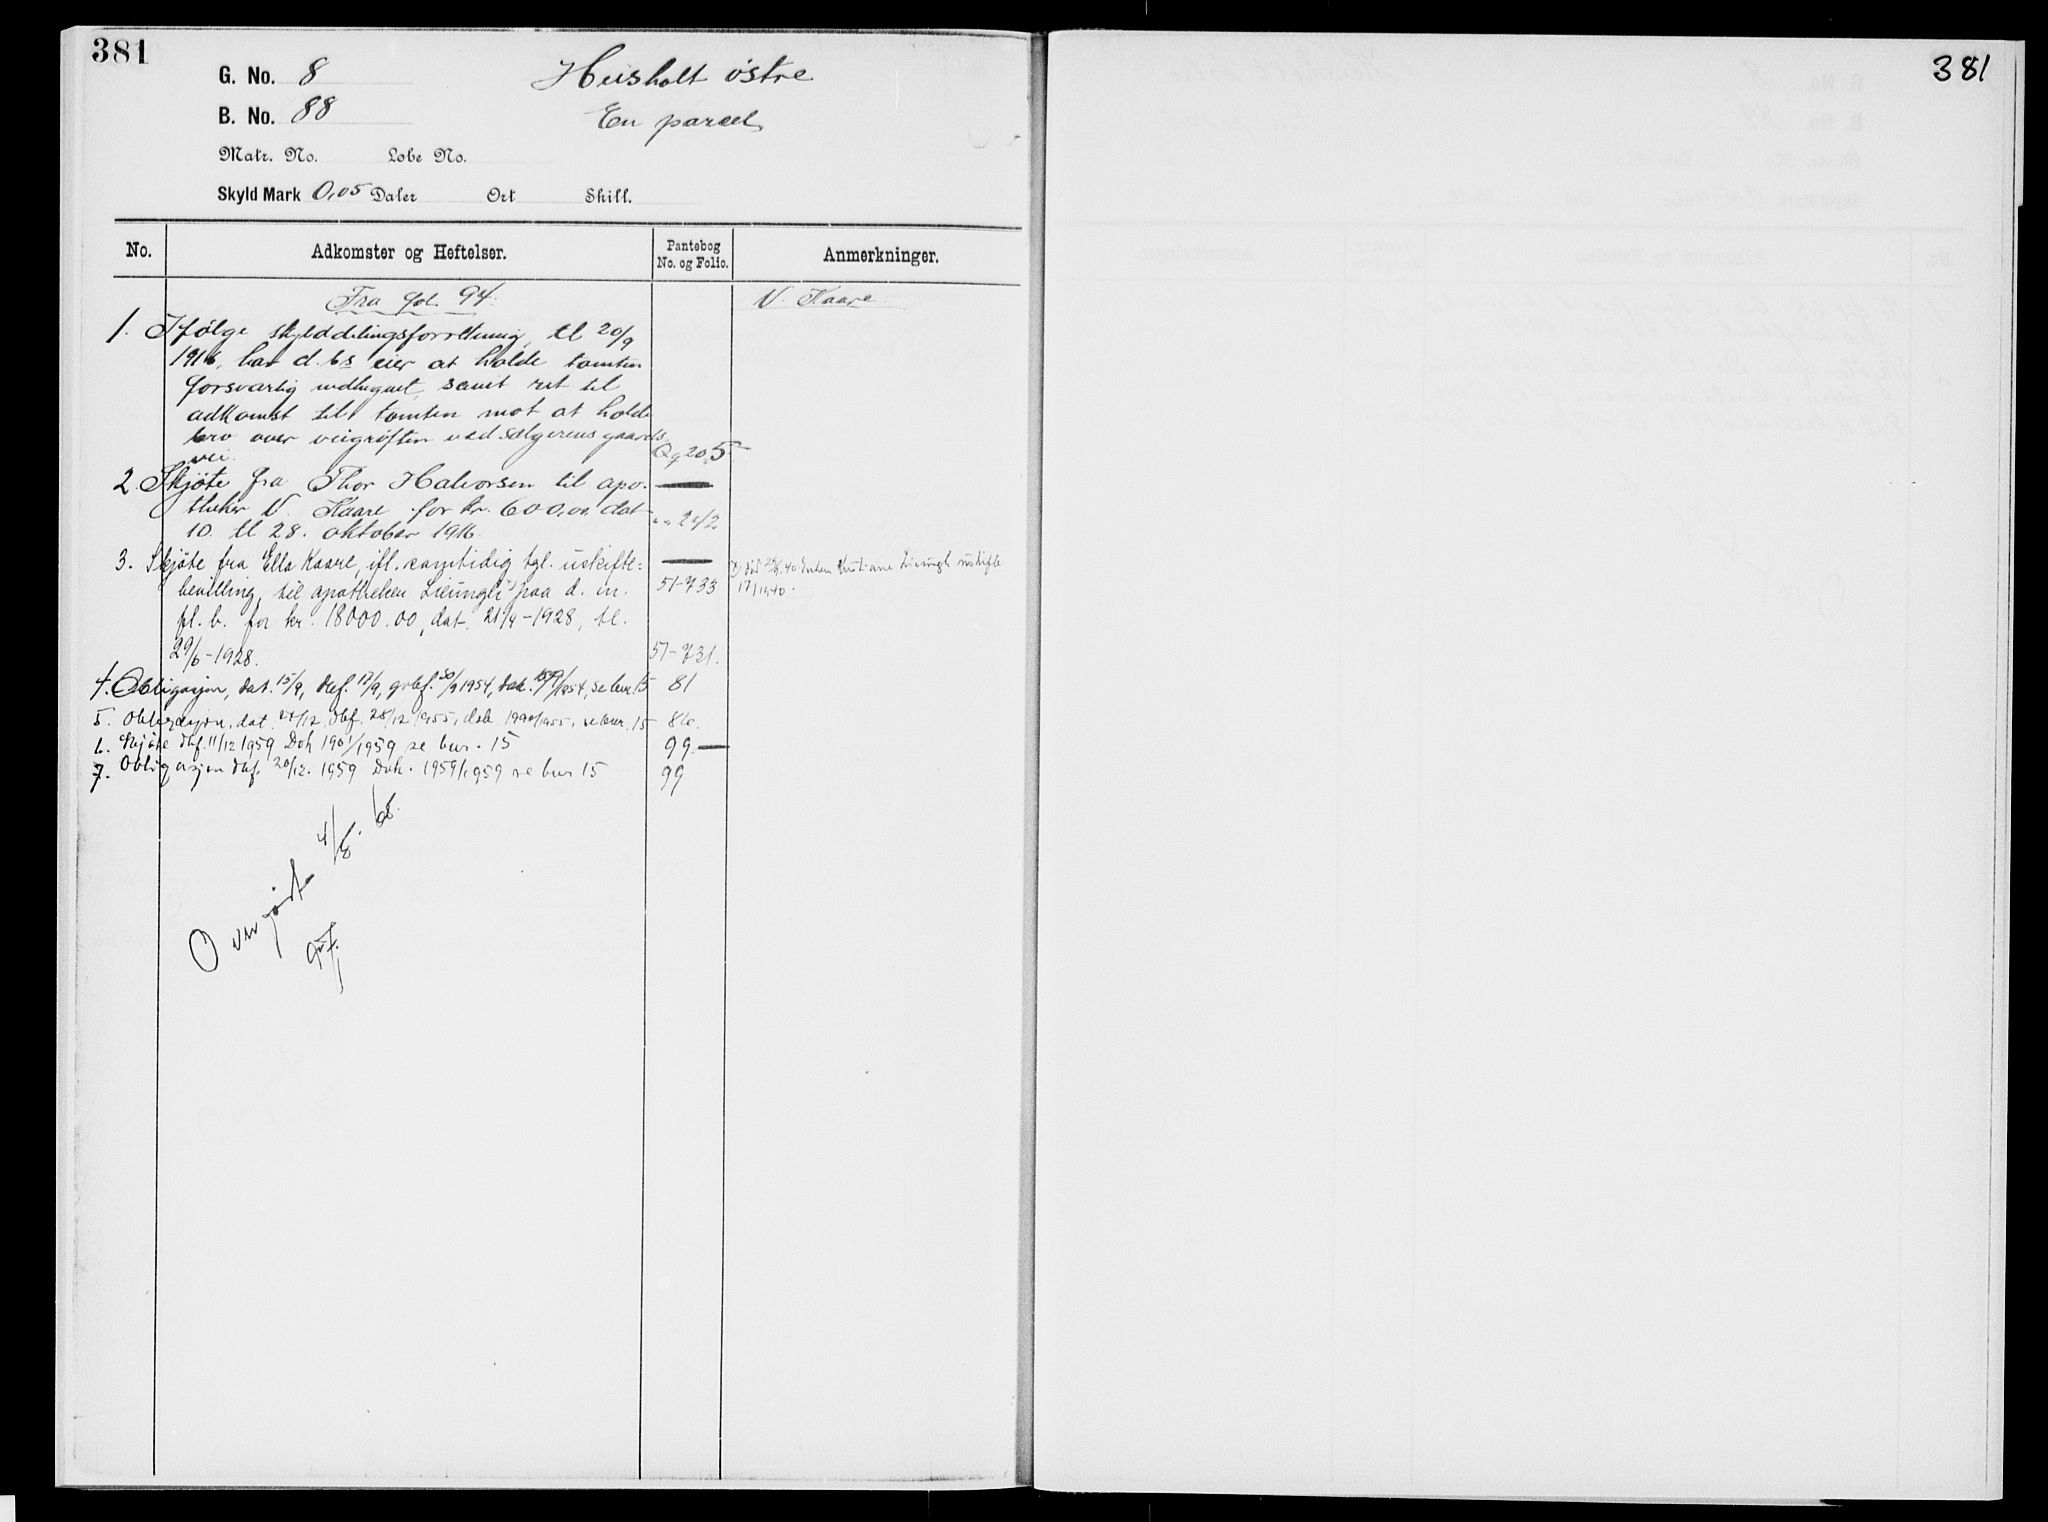 381
G. No. 8
Heisholt östre
B. No. 88
En parcel
Matr. No. Løbe No.
Skyld Mark 0,05 Daler Ort Skill.
No. Adkomster og Heftelser. Pantebog No. og Folio. Anmerkninger.
Fra fol. 94. N. Kaare.
1. Ifölge skylddelingsforretning, tl 20/9
1916, har d. bs eier at holde tomten
forsvarlig indhegnet, samt ret til
adkomst til tomten mot at holde
bro over veigröften ved sælgerens gaards
vei. Qq 205
2. Skjöte fra Thor Halvorsen til apo-
theker N. Kaare for kr. 600,00 dat
10. tl 28. oktober 1916. " " 242
3. Skjöte fra Ella Kaare, ifl. samtidig tgl. uskifte-
bevilling, til apotheker Lieungh 1) paa d. m. 51-733
fl. b. for kr. 18000.00, dat. 21/4-1928, tl.
29/6-1928. 51-731.
1) död 40. Enken Kristiane Lieungh uskifte
4. Obligasjon, dat. 15/9, dbf. 17/9, 1954, dok. se bnr. 15 81
5. Obligasjon, dat. 27/12, dbf. 28/12 1955, dok. 1990/1955, se bnr. 15 86.
6. Skjöte dbf. 11/12 1959 Dok 1901/1959 se bnr. 15 99.
7. Obligasjon dbf. 20/12. 1959 Dok. 1959/1959 se bnr 15 99
Overfört 4/8. 68.
381